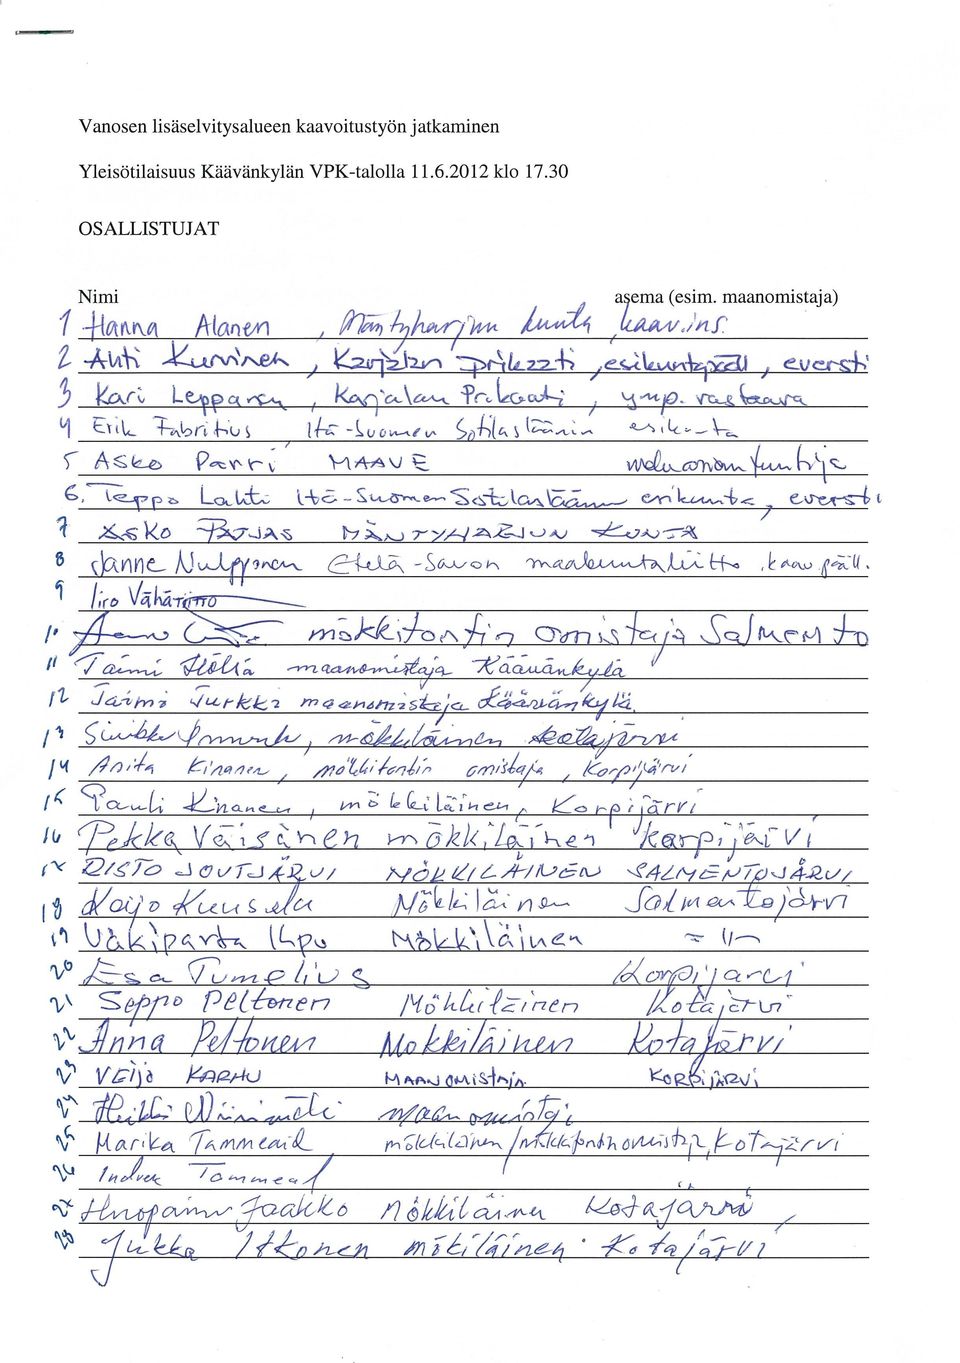 Vanosen lisäselvitysalueen kaavoitustyön jatkaminen
Yleisötilaisuus Käävänkylän VPK-talolla 11.6.2012 klo 17.30
OSALLISTUJAT
Nimi asema (esim. maanomistaja)
1 Hanna Alanen, Mäntyharjun kunta, kaav.ins.
2 Ahti Kurvinen, Karjalan Prikaati, esikuntapääll, eversti
3 Kari Leppanen, Karjalan Prikaati, ymp. vastaava
4 Erik Fabritius Itä-Suomen Sotilasläänin esikunta
5 Asko Parri MAAVE meluasiantuntija
6. Teppo Lahti Itä-Suomen Sotilasläänin esikunta, eversti
7 ASKO PATJAS MÄNTYHARJUN KUNTA
8 Janne Nulpponen Etelä-Savon maakuntaliitto, kaav.pääll.
9 Iiro Vähä
10 mökkitontin omistaja Salmento
11 Taimi maanomistaja Käävänkylä
12 Jaimi Turkki maanomistaja Käävänkylä.
13 Sirkka, mökkiläinen Kotajärvi
14 Anita Kinanen, mökkitontin omistaja, Korpijärvi
15 Pauli Kinanen, mökkiläinen, Korpijärvi
16 Pekka Väisänen mökkiläinen Korpijärvi
17 RISTO JOUTJÄRVI MÖKKILÄINEN SALMENTOJÄRVI
18 Kaijo Kuusela Mökkiläinen Salmentojärvi
19 Väkiparta Ilpo Mökkiläinen = 11 -
20 Esa Tumelius Korpijärvi
21 Seppo Peltonen Mökkiläinen Kotajärvi
22 Anna Peltonen Mökkiläinen Kotajärvi
23 VEijo KARHU MAANOMISTAJA KORPIJÄRVI
24 Heikki maanomistaja
25 Marika Tammeaid mökkiläinen/mökkitontin omistaja, Kotajärvi
26 Indrek Tammeaid
27 Jaakko Mökkiläinen Kotajärvi
28 Jukka Itkonen mökiläinen. Kotajärvi